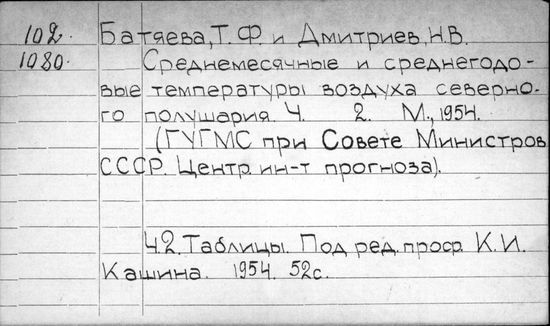 102. Батяева, Т. Ф. и Дмитриев, Н. В.
1080. Среднемесячные и среднегодо-
вые температуры воздуха северно-
го полушария. Ч. 2. М., 1954.
(ГУГМС при Совете Министров
СССР. Центр. ин-т прогноза).
Ч. 2. Таблицы. Под ред. проф. К. И.
Кашина. 1954. 52 с.